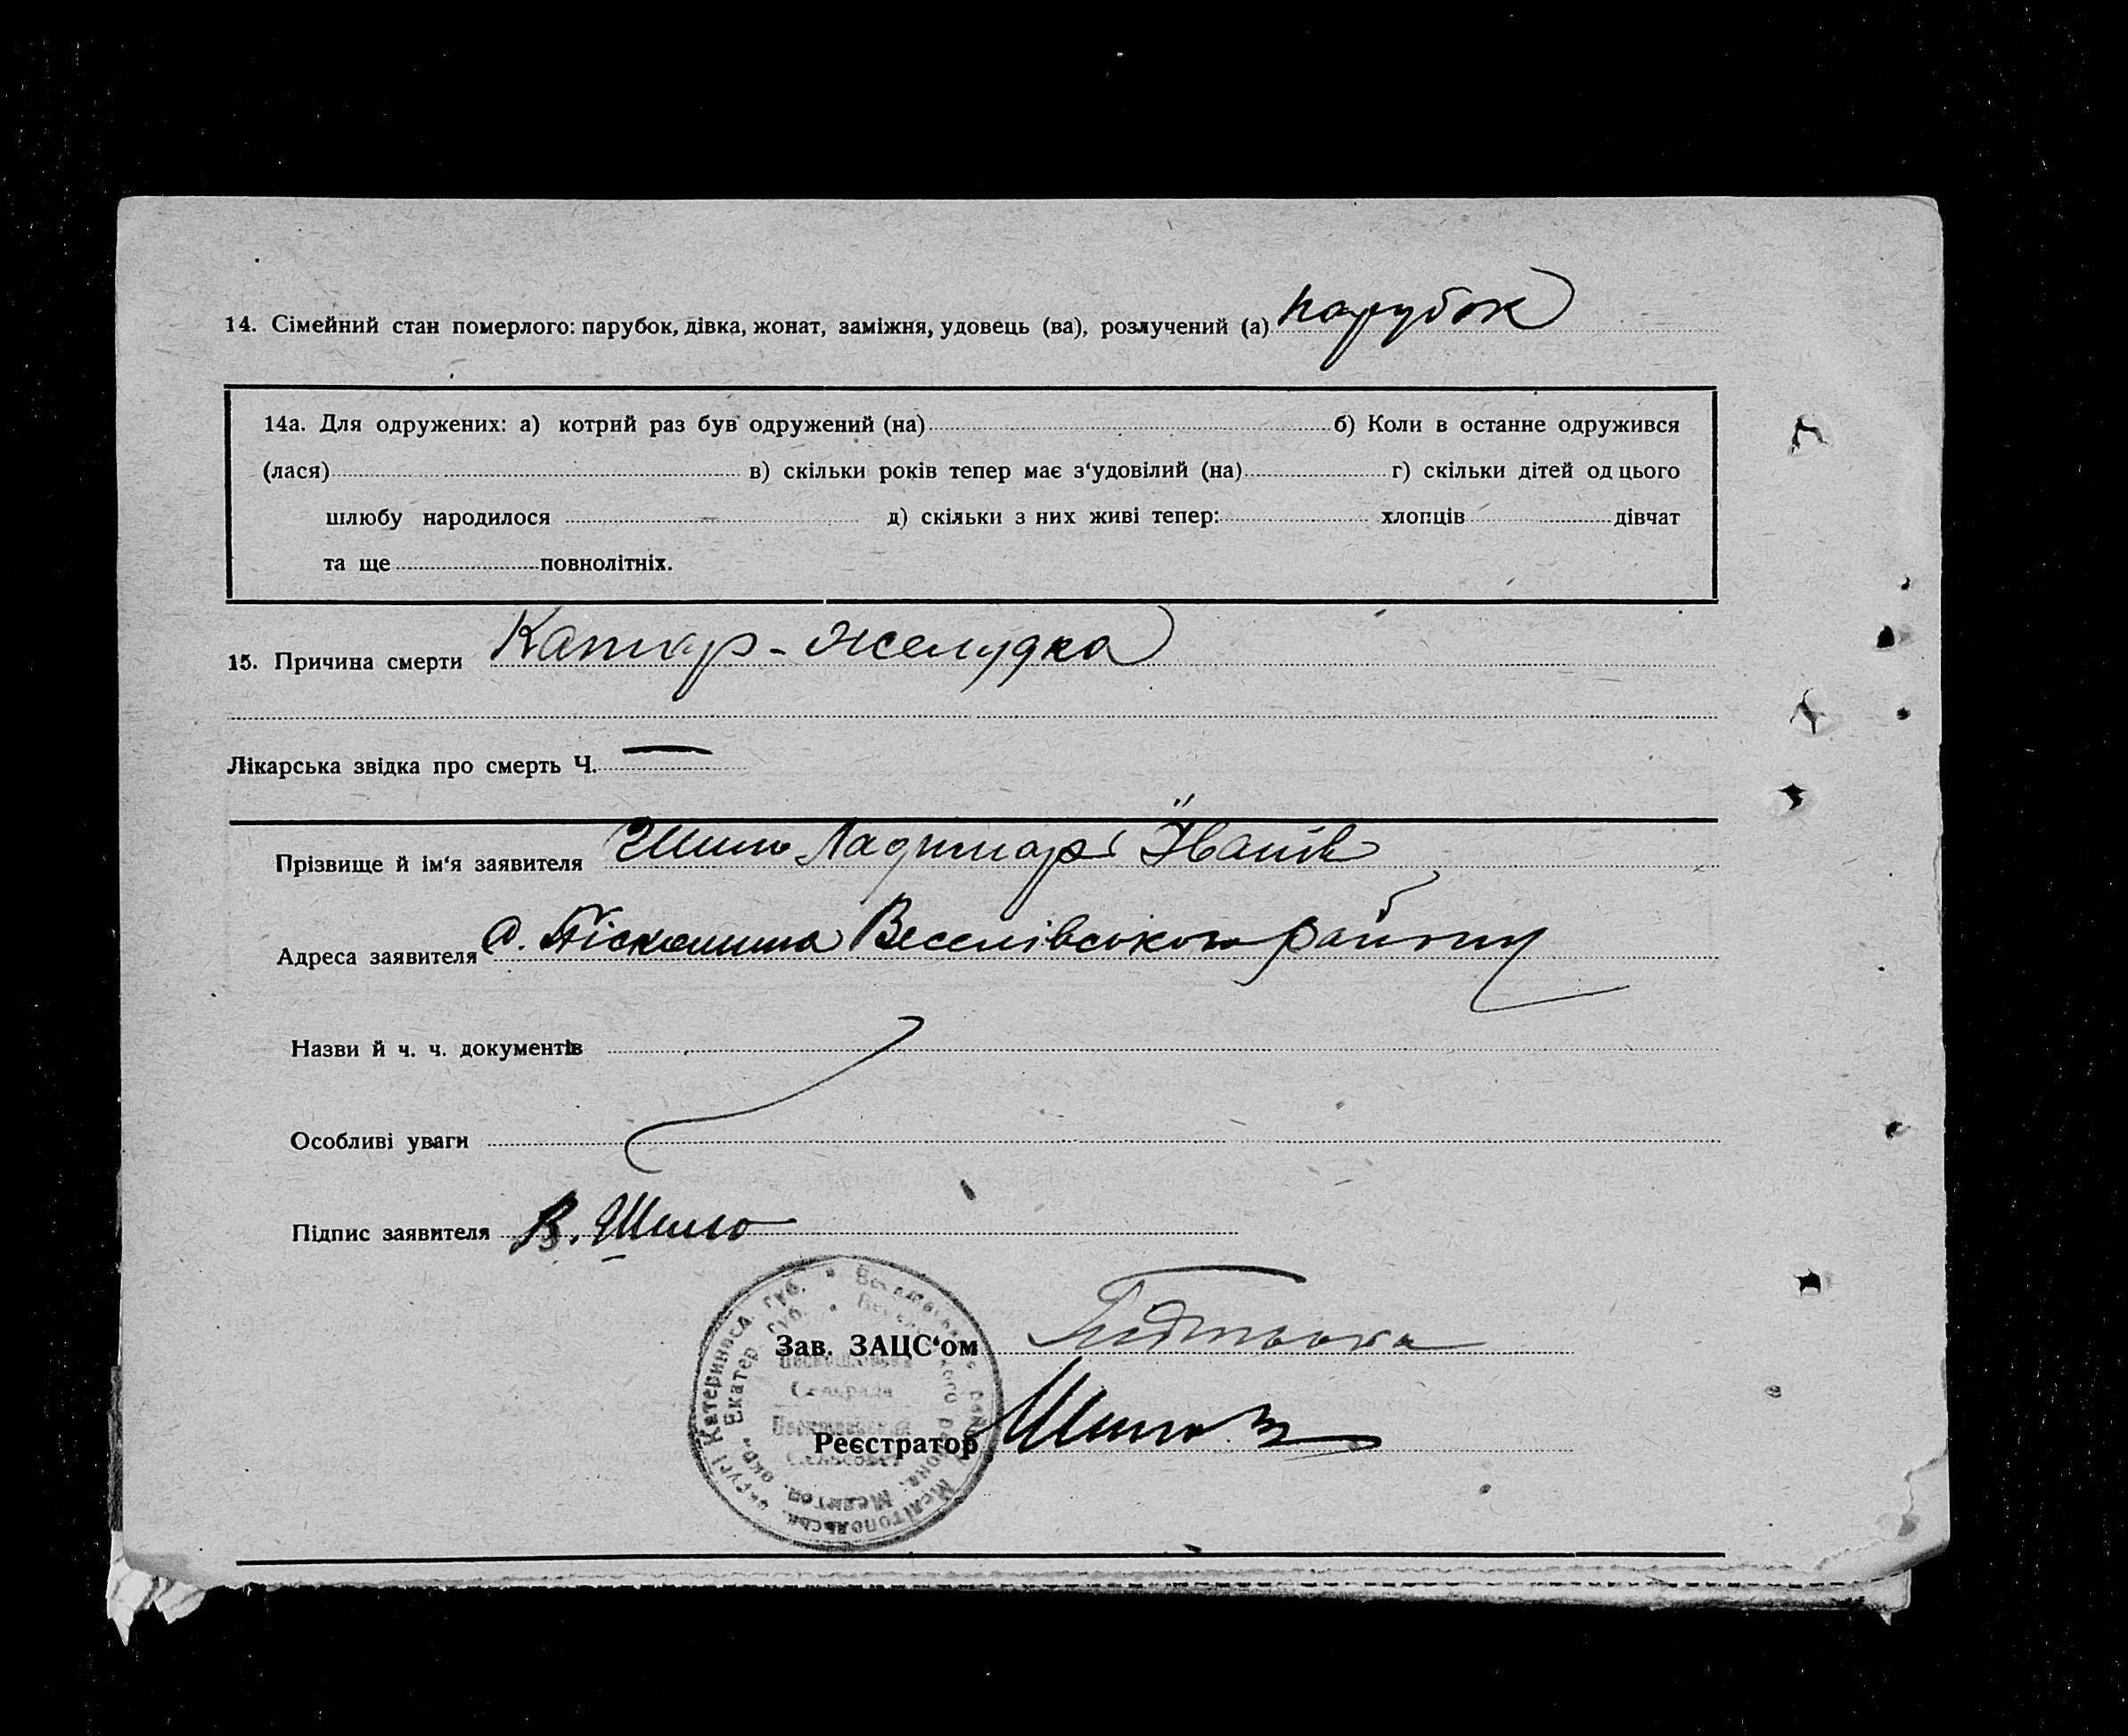 14. Сімейний стан померлого: парубок, дівка, жонат, заміжня, удовець (ва), розлучений (а) парубок
14а. Для одружених: а) котрий раз був одружений (на) б) Коли в останне одружився
(лася) в) скільки років тепер має з‘удовілий (на) г) скільки дітей од цього
шлюбу народилося д) скільки з них живі тепер: хлопців дівчат
та ще повнолітніх.
15. Причина смерти Катар-желудка
Лікарська звідка про смерть Ч. —
Прізвище й ім‘я заявителя Шило
Адреса заявителя с. Веселівського району
Назви й ч. ч. документів
Особливі уваги
Підпис заявителя В. Шило
Зав. ЗАЦС‘ом
Реєстратор